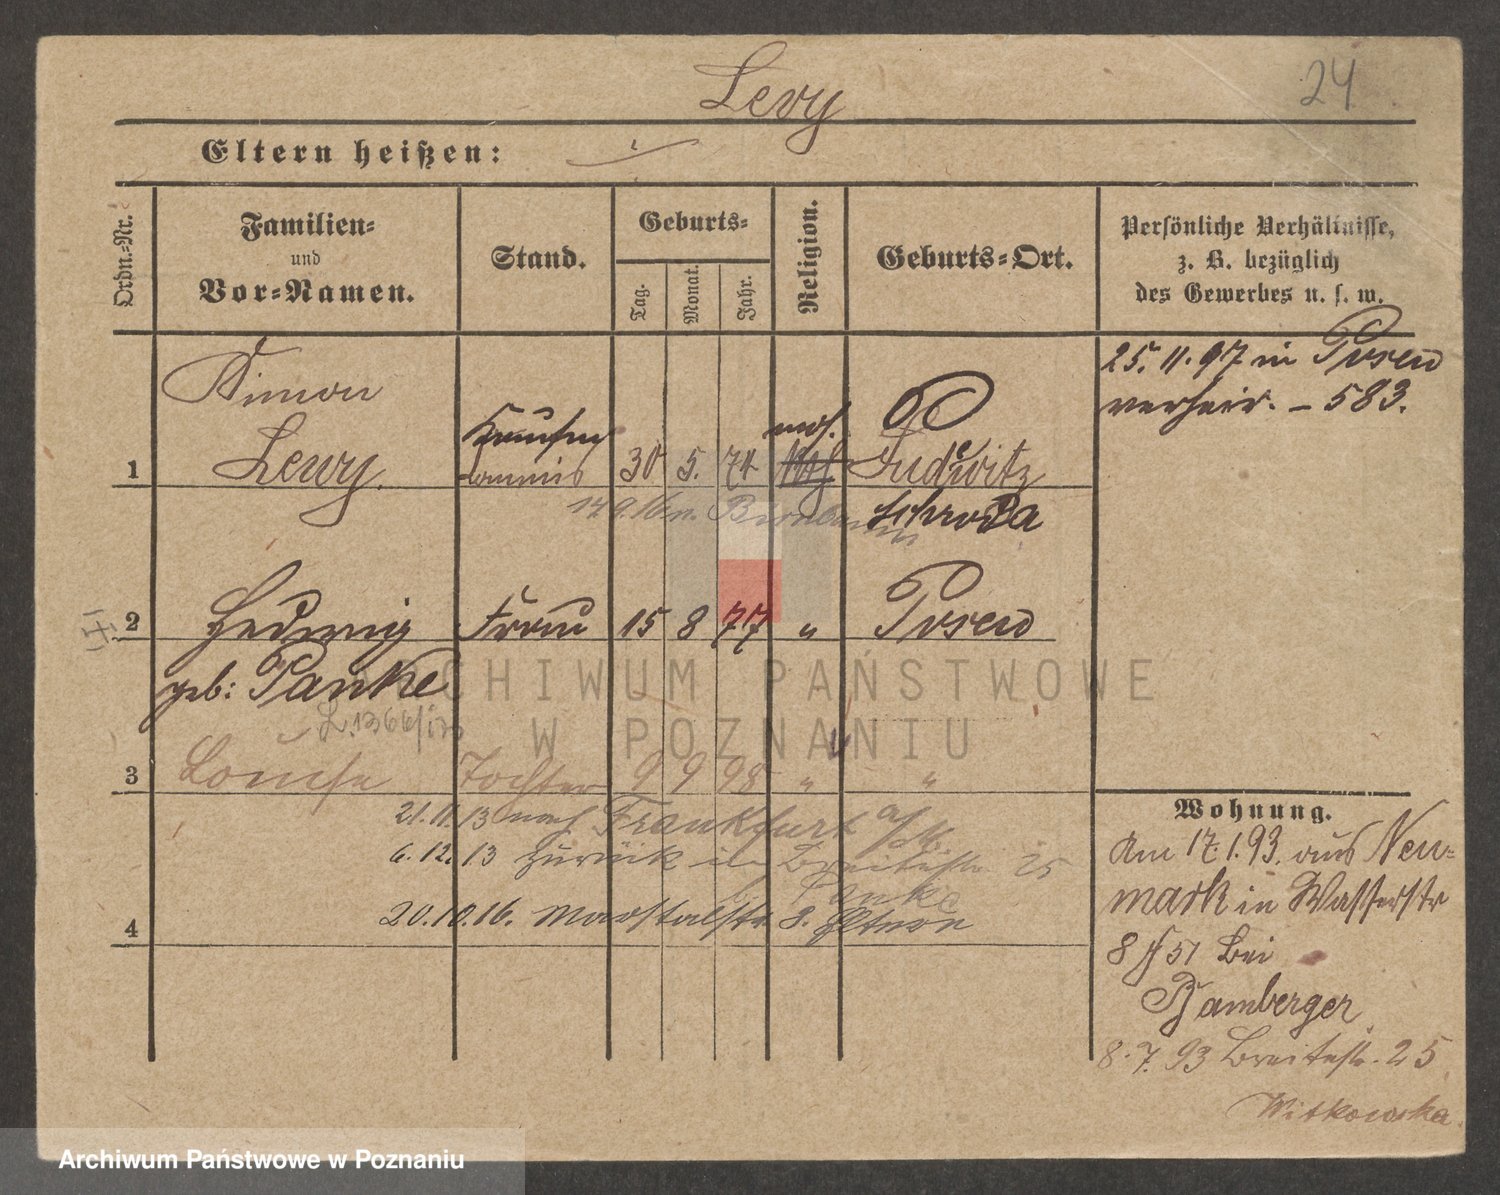 Levy
24
Eltern heißen:
Ordn.-Nr.
Familien-
und
Vor-Namen.
Stand.
Geburts-
Tag.
Monat.
Jahr.
Religion.
Geburts-Ort.
Persönliche Verhältnisse,
z. B. bezüglich
des Gewerbes u. s. w.
25.11.97 in Posen
verheir. – 583.
Simon
mos.
1 Lewy. 30 5. 74
Schroda
14.9.16 n. Birnbaum
2 Hedwig Frau 15 8 77 " Posen
geb: Panke
3 Louise Tochter 9 9 98 " "
21.11.13 nach Frankfurt a/M.
6.12.13 zurück in Breitestr. 25
Panke
4 20.10.16. Marstallstr 8. Eltern
Wohnung.
Am 17.1.93. aus Neu-
mark in Wasserstr
8 51 bei
Bamberger
8.7.93 Breitestr. 25
Witkowska
ARCHIWUM PAŃSTWOWE
W POZNANIU
Archiwum Państwowe w Poznaniu